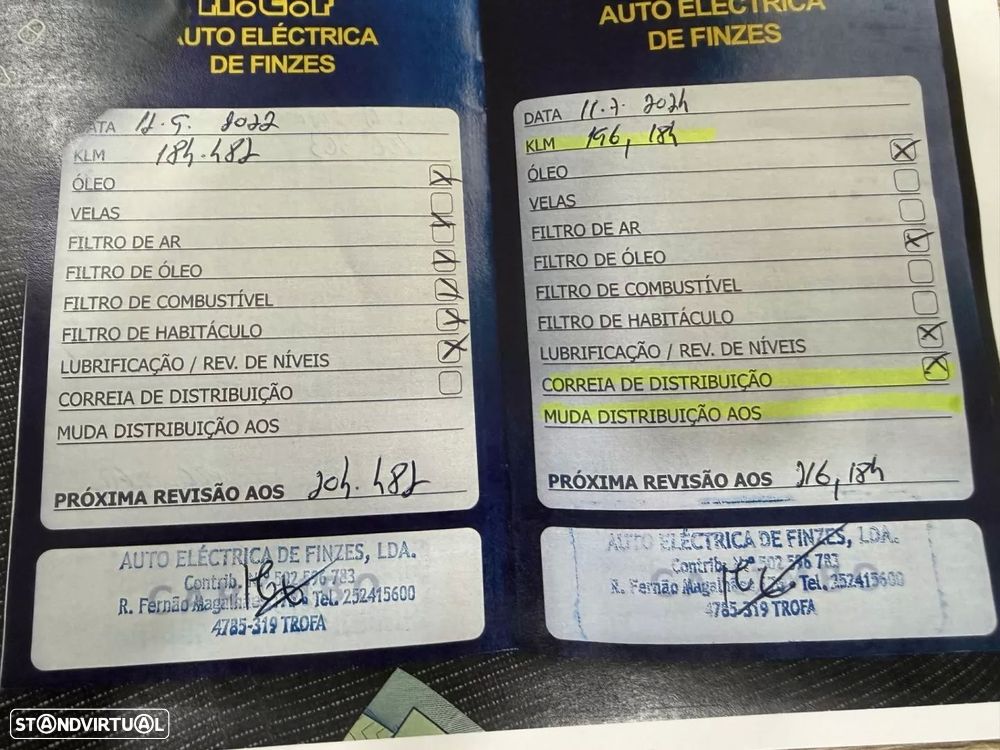 AUTO ELÉCTRICA
DE FINZES
DATA 12.9. 2022
KLM 184.482
ÓLEO
VELAS
FILTRO DE AR
FILTRO DE ÓLEO
FILTRO DE COMBUSTÍVEL
FILTRO DE HABITÁCULO
LUBRIFICAÇÃO / REV. DE NÍVEIS
CORREIA DE DISTRIBUIÇÃO
MUDA DISTRIBUIÇÃO AOS
PRÓXIMA REVISÃO AOS 204.482
AUTO ELÉCTRICA DE FINZES, LDA.
Contrib. Nº 502 596 783
R. Fernão Magalhães Tel. 252415600
4785-319 TROFA
AUTO ELÉCTRICA
DE FINZES
DATA 11.7. 2024
KLM 196,184
ÓLEO
VELAS
FILTRO DE AR
FILTRO DE ÓLEO
FILTRO DE COMBUSTÍVEL
FILTRO DE HABITÁCULO
LUBRIFICAÇÃO / REV. DE NÍVEIS
CORREIA DE DISTRIBUIÇÃO
MUDA DISTRIBUIÇÃO AOS
PRÓXIMA REVISÃO AOS 216,184
AUTO ELÉCTRICA DE FINZES, LDA.
Contrib. Nº 502 596 783
R. Fernão Magalhães Tel. 252415600
4785-319 TROFA
STANDVIRTUAL